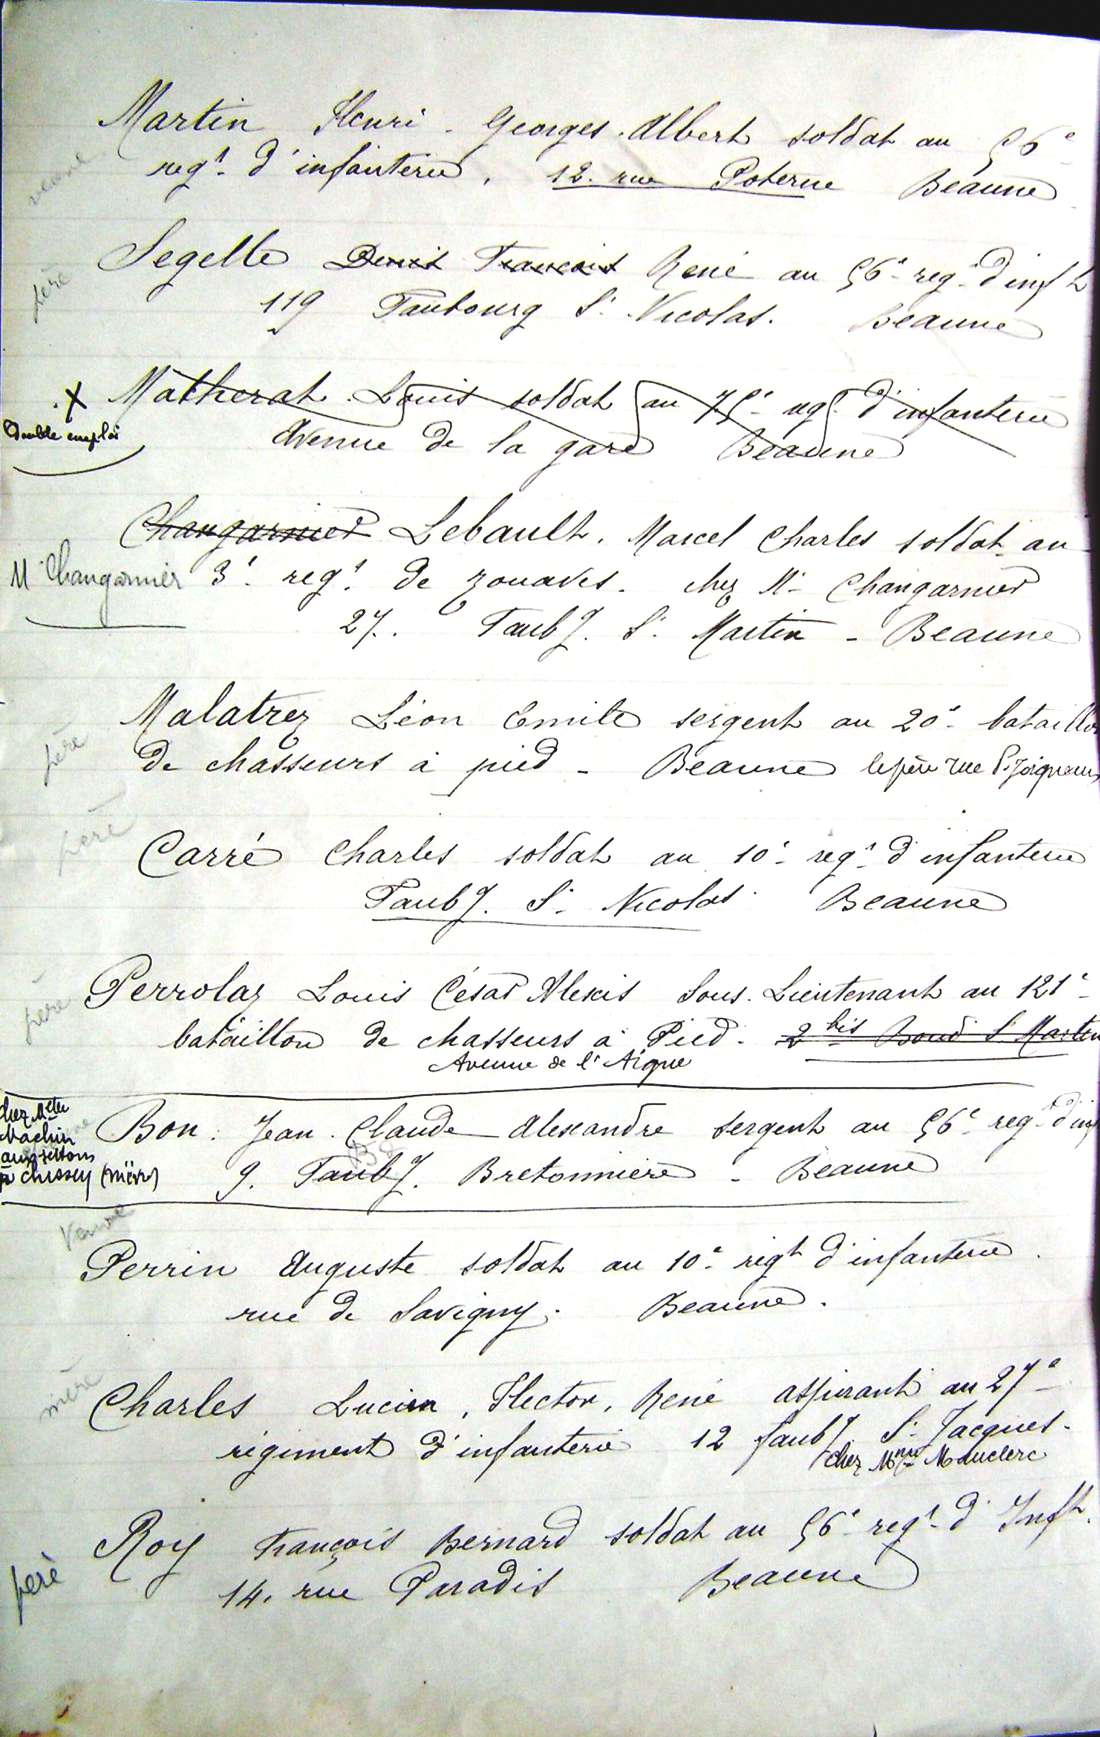 Martin Henri. Georges. Albert soldat au 56e
veuve
regt d'infanterie, 12. rue Poterne Beaune
Segelle Denis François René au 56e reg. d'inft
père
119 Faubourg St. Nicolas. Beaune
X Matherat. Louis soldat au 75e reg. d'infanterie
Double emploi
Avenue de la gare Beaune
Changarnier Lebault. Marcel Charles soldat au
M Changarnier 3e regt de zouaves. chez Mr Changarnier
27. Faubg. St. Martin - Beaune
Malatrez Léon Emile sergent au 20e bataillon
père
de chasseurs à pied - Beaune le père rue P. Joigneaux
père
Carré Charles soldat au 10e regt d'infanterie
Faubg. St. Nicolas Beaune
Perrolaz Louis César Alexis Sous. Lieutenant au 121e
père
bataillon de chasseurs à Pied. 2 bis Boud St Martin
Avenue de l'Aigue
chez Melle
Bon. Jean. Claude Alexandre sergent au 56e reg. d'inf
à Chissey (mère)
9. Faubg. Bretonnière - Beaune
veuve
Perrin Auguste soldat au 10e regt d'infanterie.
rue de Savigny. Beaune.
mère
Charles Lucien, Hector, René aspirant au 27e
régiment d'infanterie 12 faubg St. Jacques.
chez Mme Mauclerc
Roy François Bernard soldat au 56e regt d'Inft.
père
14. rue Paradis Beaune